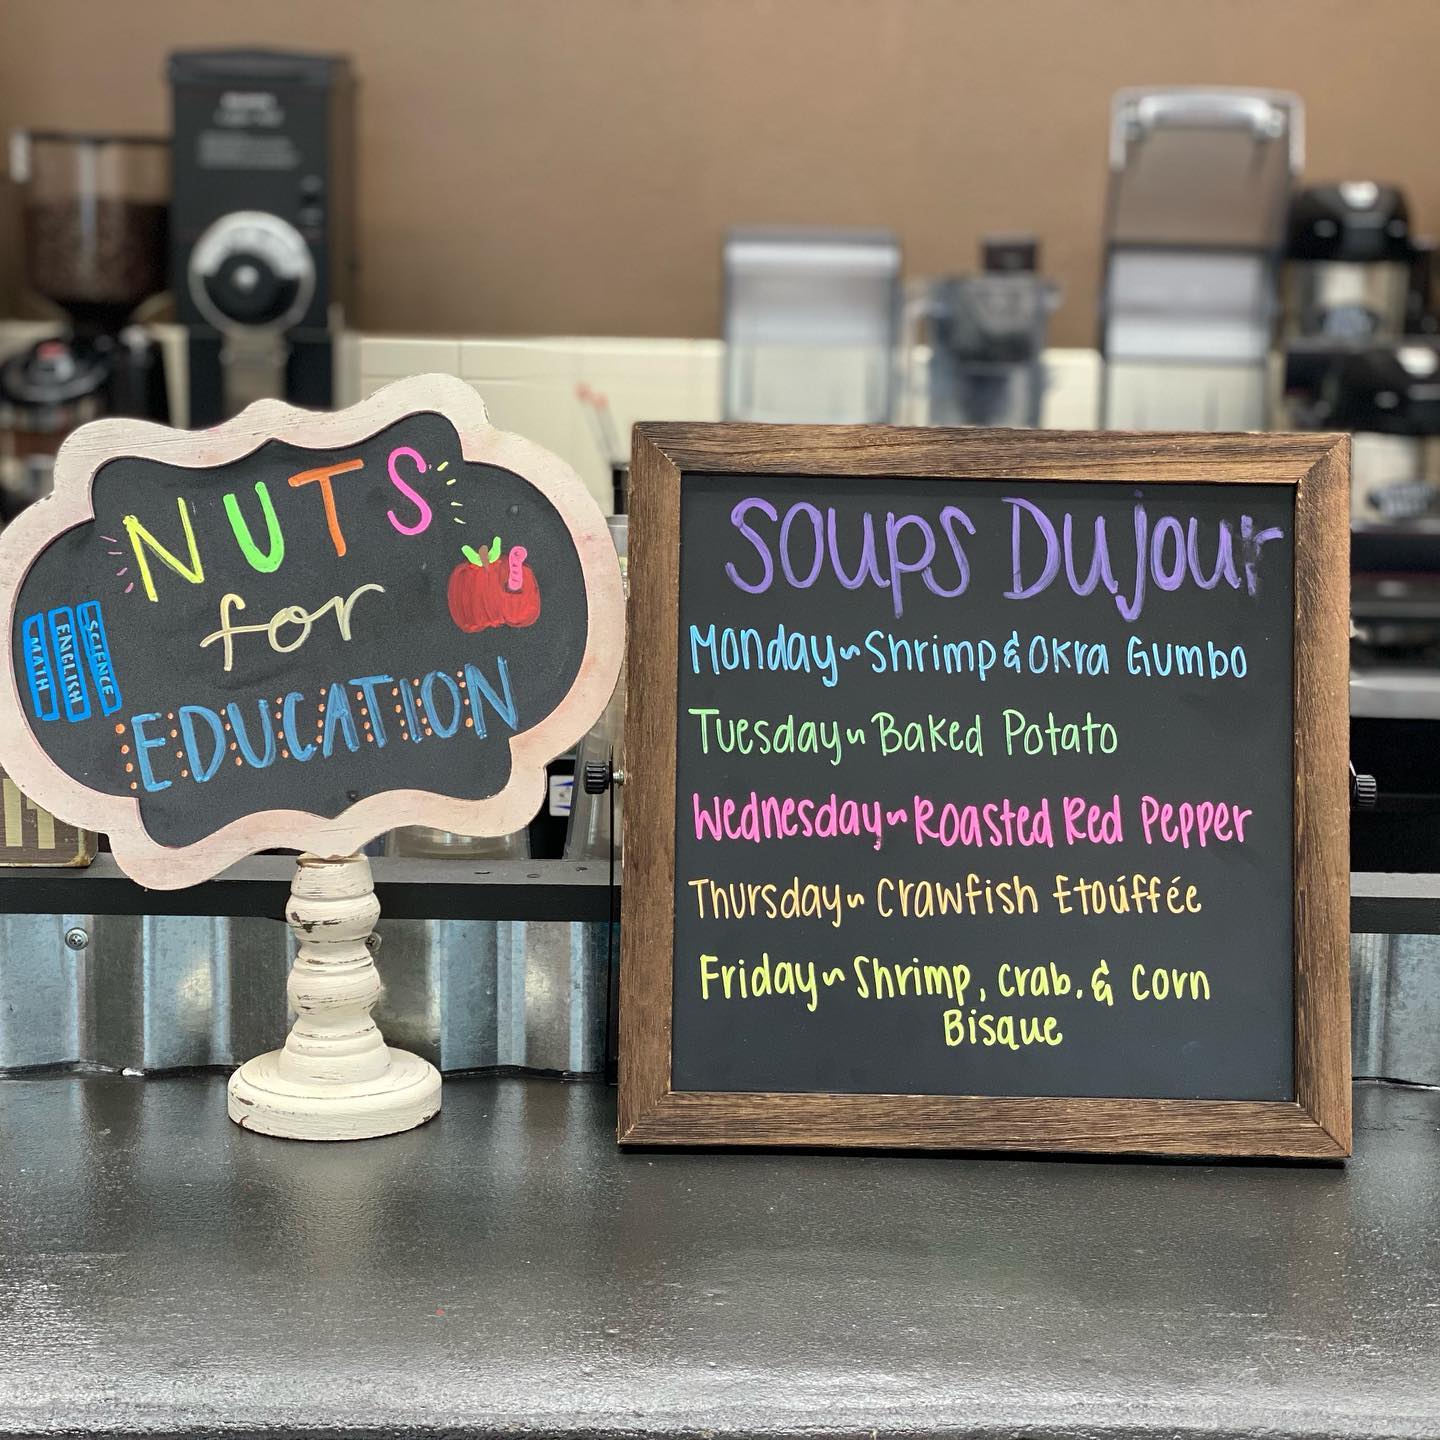 NUTS
for
EDUCATION
MATH
ENGLISH
SCIENCE
SOUPS DUJOUR
Monday~Shrimp & Okra Gumbo
Tuesday~Baked Potato
Wednesday~Roasted Red Pepper
Thursday~Crawfish Etoúffée
Friday~Shrimp, Crab, & Corn
Bisque